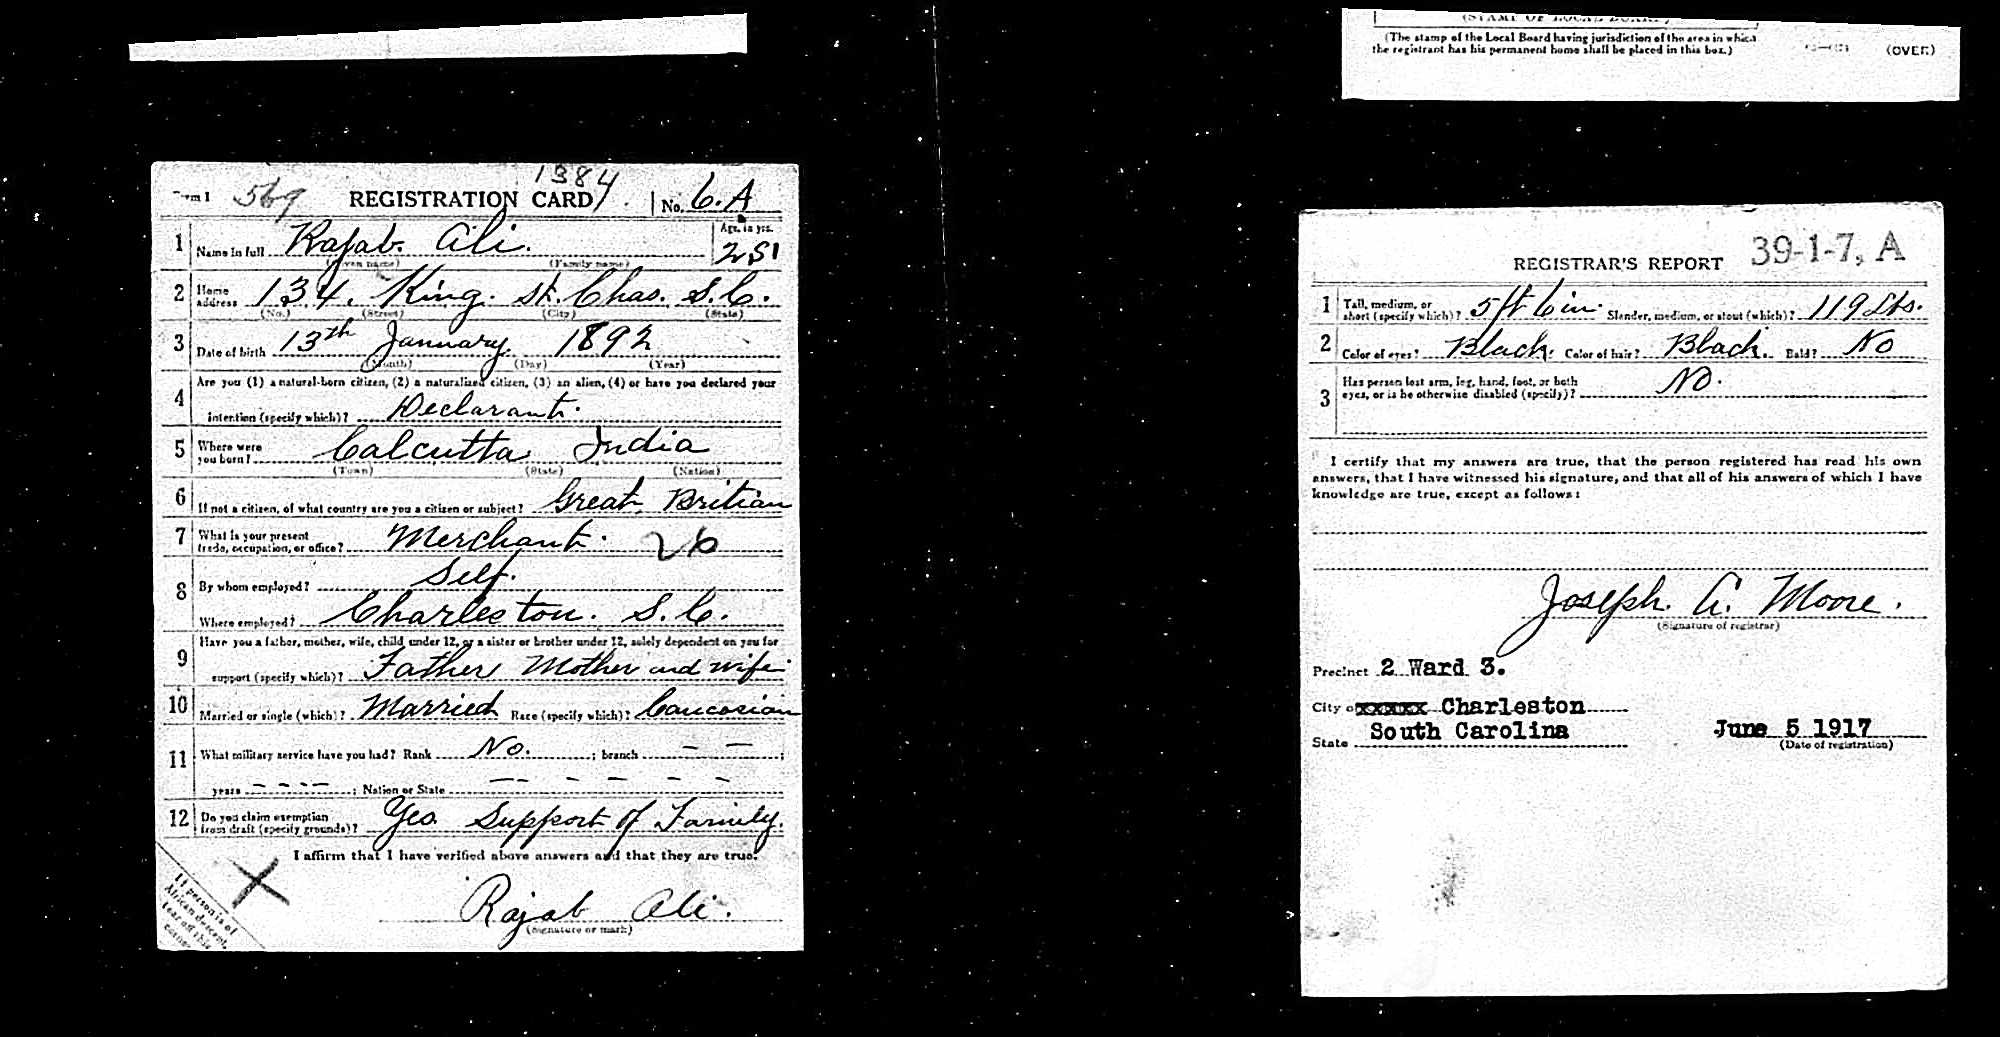 1384
Form 1 569 REGISTRATION CARD No. 6. A
1 Name in full Rajab. Ali. Age, in yrs. 25
(Given name) (Family name)
2 Home address 134. King. St. Chas. S.C.
(No.) (Street) (City) (State)
3 Date of birth 13th January 1892
(Month) (Day) (Year)
4 Are you (1) a natural-born citizen, (2) a naturalized citizen, (3) an alien, (4) or have you declared your
intention (specify which)? Declarant.
5 Where were you born? Calcutta India
(Town) (State) (Nation)
6 If not a citizen, of what country are you a citizen or subject? Great Britian
7 What is your present trade, occupation, or office? Merchant. 26
8 By whom employed? Self.
Where employed? Charleston. S.C.
9 Have you a father, mother, wife, child under 12, or a sister or brother under 12, solely dependent on you for
support (specify which)? Father Mother and wife
10 Married or single (which)? Married Race (specify which)? Caucosian
11 What military service have you had? Rank No. ; branch — — ;
years — — — — ; Nation or State — — — — — —
12 Do you claim exemption from draft (specify grounds)? Yes. Support of Family.
I affirm that I have verified above answers and that they are true.
Rajab Ali.
(Signature or mark)
If person is of
African descent,
tear off this
corner
(STAMP OF LOCAL BOARD)
(The stamp of the Local Board having jurisdiction of the area in which
the registrant has his permanent home shall be placed in this box.) (OVER)
REGISTRAR'S REPORT 39-1-7, A
1 Tall, medium, or short (specify which)? 5 ft 6 in. Slender, medium, or stout (which)? 119 Lbs.
2 Color of eyes? Black. Color of hair? Black. Bald? No
3 Has person lost arm, leg, hand, foot, or both
eyes, or is he otherwise disabled (specify)? No.
I certify that my answers are true, that the person registered has read his own
answers, that I have witnessed his signature, and that all of his answers of which I have
knowledge are true, except as follows:
Joseph. A. Moore.
(Signature of registrar)
Precinct 2 Ward 3.
City o xxxxx Charleston
State South Carolina June 5 1917
(Date of registration)